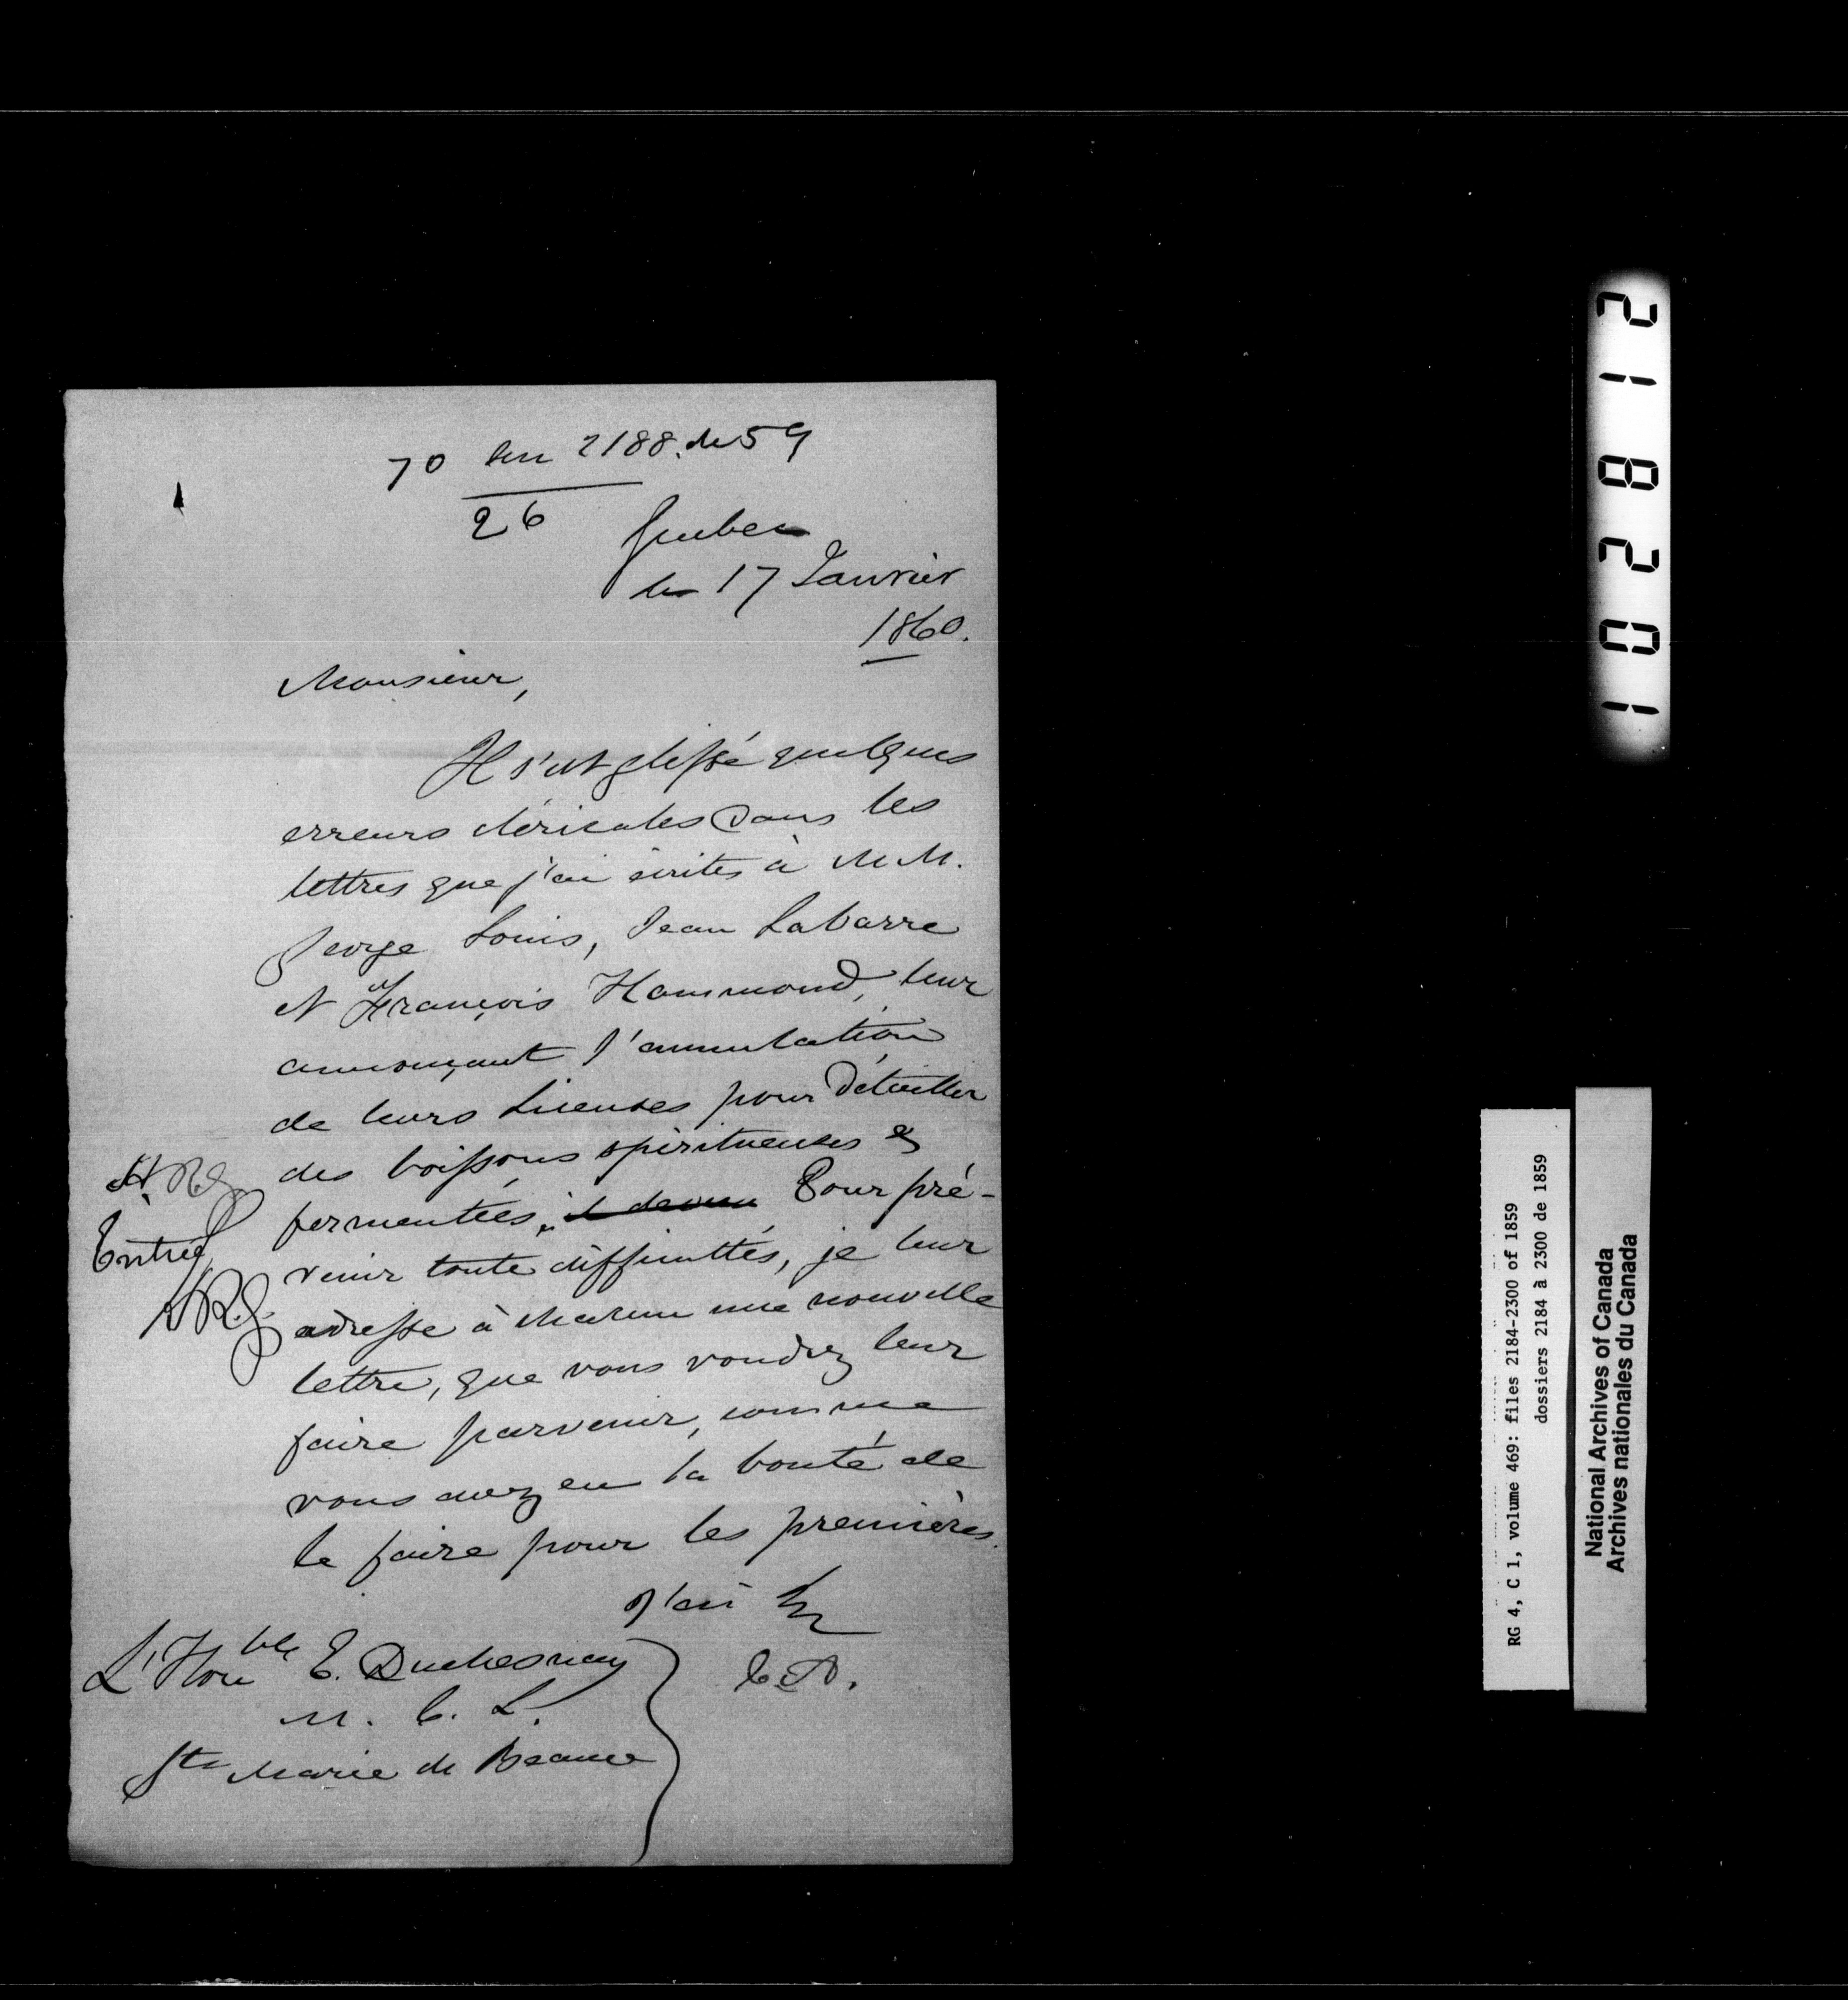 70 sur 2188. de 59
26
Quebec
le 17 Janvier
1860.
Monsieur,
Il s'est glissé quelques
erreurs cléricales dans les
lettres que j'ai écrites à M.M.
George Louis, Jean Labarre
et François Hammond, leur
annonçant l'annulation
de leurs Licenses pour détailler
des boissons spiritueuses &
fermentées. Pour pré-
venir toute difficultés, je leur
adresse à chacun une nouvelle
lettre, que vous voudrez leur
faire parvenir, comme
vous avez eu la bonté de
le faire pour les premières.
J'ai &c
C. A.
Entrée
L'Honble E. Duchesnay
M. C. L.
Ste Marie de Beauce
218201
RG 4, C 1, volume 469: files 2184-2300 of 1859
dossiers 2184 à 2300 de 1859
National Archives of Canada
Archives nationales du Canada